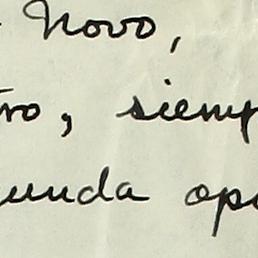 Novo,
ro, siemp
unda opo